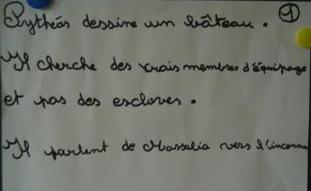 Pythéas dessine un bâteau. 1
Il cherche des vrais membres d'équipage
et pas des esclaves.
Il partent de Massalia vers l'inconnu